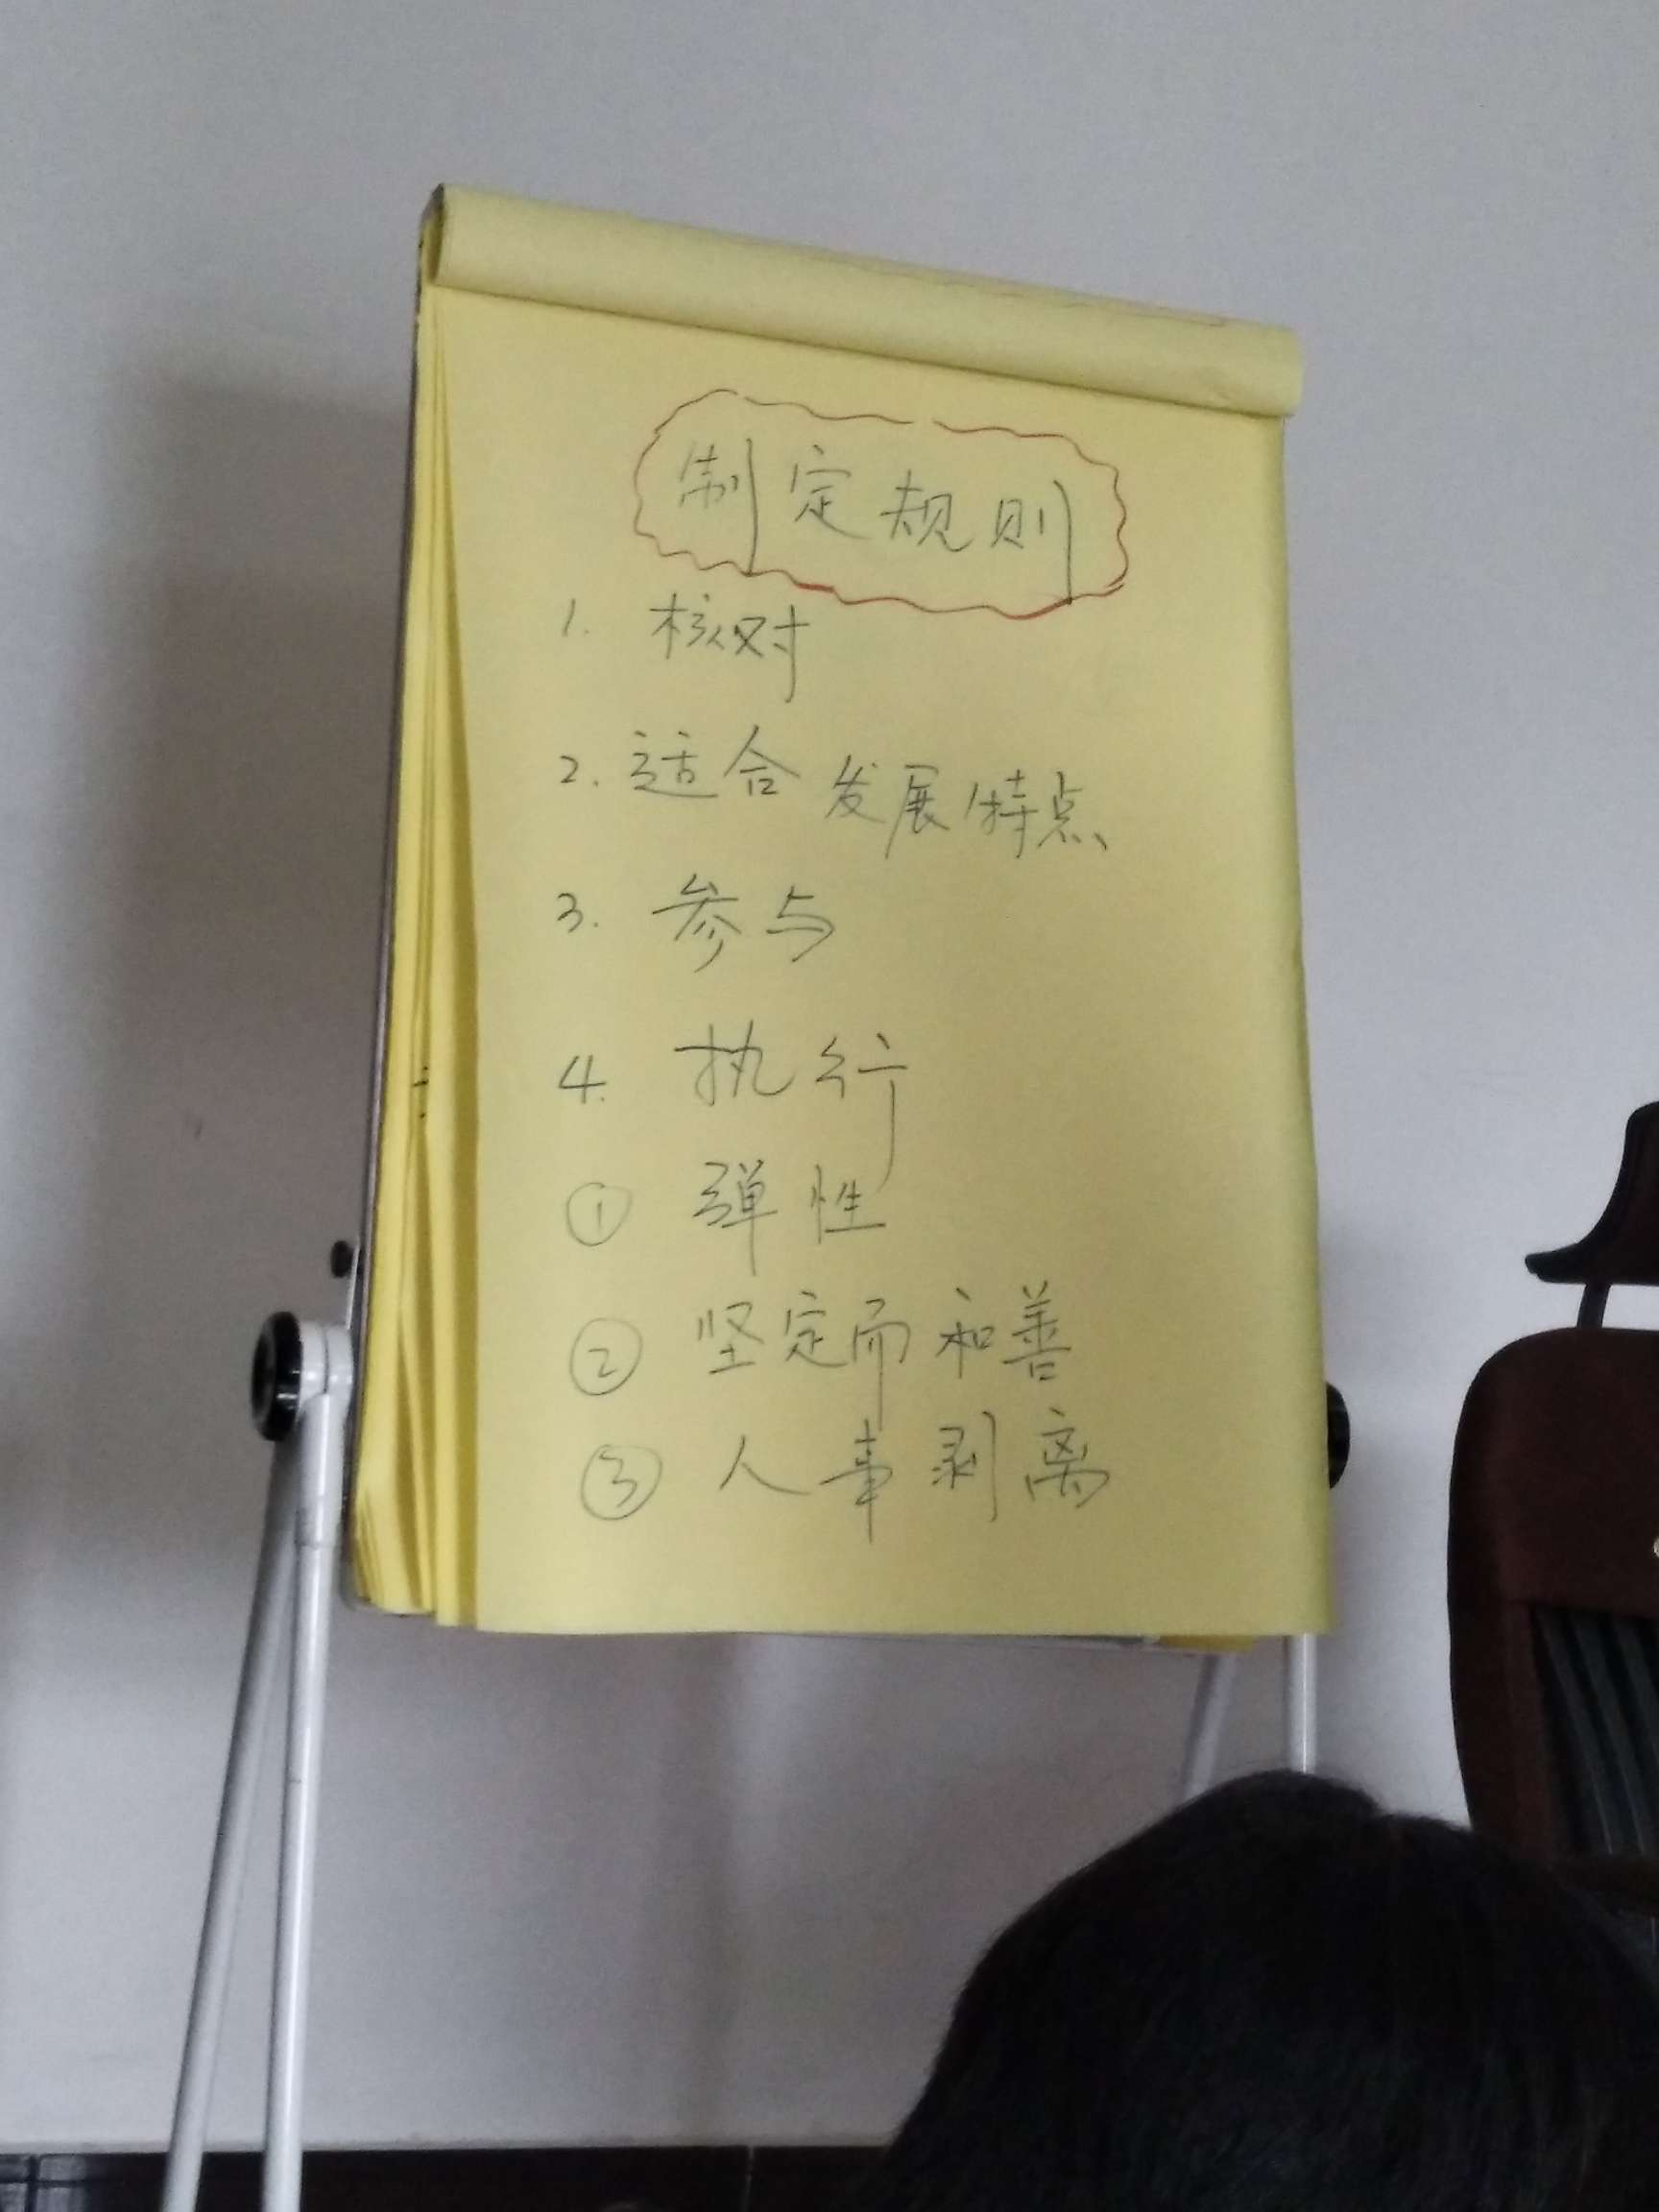 制定规则
1. 核对
2. 适合发展特点
3. 参与
4. 执行
① 弹性
② 坚定而和善
③ 人事剥离